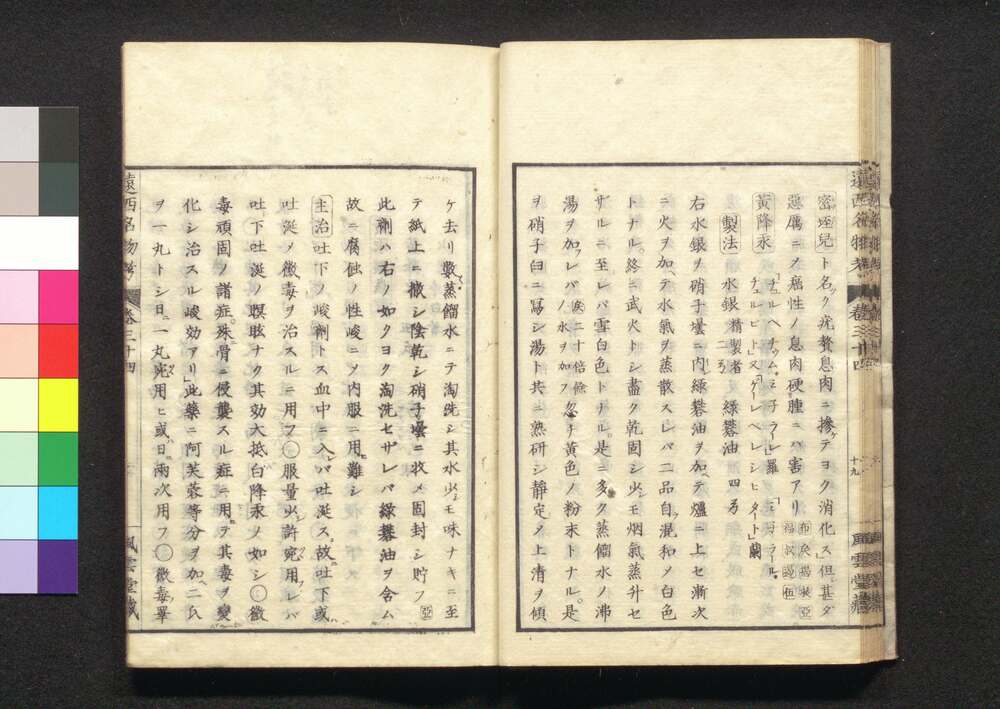 密垤児ト名ク疣贅息肉ニ摻テヨク消化ス但甚ダ
悪厲ニメ癌性ノ息肉硬腫ニハ害アリ
黄降汞
製法 水銀精製者 緑礬油
右水銀ヲ硝子壜ニ内緑礬油ヲ加ヘテ爐ニ上セ漸次
ニ火ヲ加ヘテ水氣ヲ蒸散スレバ二品自混和ノ白色
トナル終ニ武火トシ盡ク乾固シ少モ烟氣蒸升セ
ザルニ至レバ雪白色トナル是ニ多ク蒸餾水ノ沸
湯ヲ加フレバ 忽チ黄色ノ粉末トナル是
ヲ硝子臼ニ寫シ湯ト共ニ熟研シ静定ノ上清ヲ傾
遠西名物考 卷三十四 十九 風雲堂蔵
ケ去リ數蒸餾水ニテ淘洗シ其水少モ味ナキニ至
テ紙上ニ撒シ陰乾シ硝子壜ニ收メ固封シ貯フ 亞
此劑ハ右ノ如クヨク淘洗セザレバ緑礬油ヲ含ム
故ニ腐蝕ノ性峻ニメ内服ニ用難シ
主治 吐下ノ峻劑トス血中ニ入バ吐涎ス故吐下或
吐涎メ黴毒ヲ治スルニ用フ○服量少許宛用フレバ
吐下吐涎ノ瞑眩ナク其効大抵白降汞ノ如シ○黴
毒頑固ノ諸症殊骨ニ侵襲スル症ニ用テ其毒ヲ變
化シ治スル峻効アリ此藥ニ阿芙蓉等分ヲ加ヘ二氏
ヲ一丸トシ日一丸宛用ヒ或日兩次用フ○黴毒睾
遠西名物考 卷三十四 風雲堂蔵